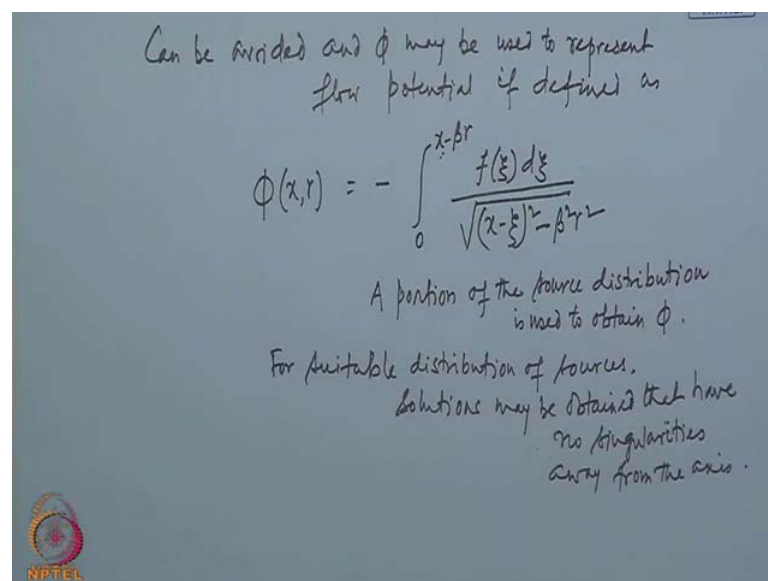 Can be avoided and ϕ may be used to represent
flow potential if defined as
ϕ(x,r) = - ∫_0^{x-βr} f(ξ)dξ / √((x-ξ)²-β²r²)
A portion of the source distribution
is used to obtain ϕ.
For suitable distribution of sources,
solutions may be obtained that have
no singularities
away from the axis.
NPTEL